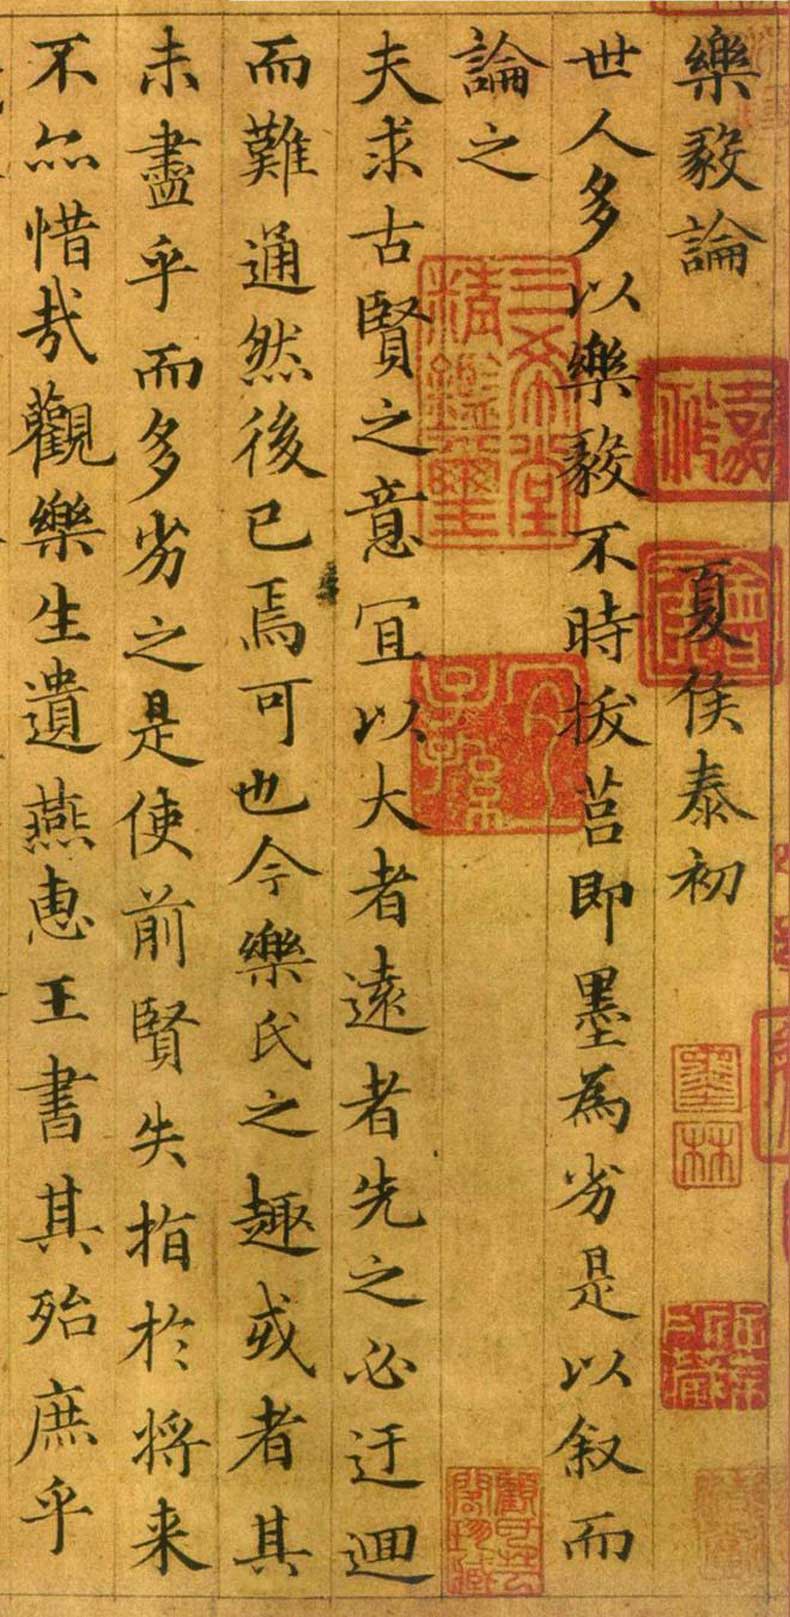 樂毅論　夏侯泰初
世人多以樂毅不時拔莒即墨為劣是以叙而
論之
夫求古賢之意宜以大者遠者先之必迂迴
而難通然後已焉可也今樂氏之趣或者其
未盡乎而多劣之是使前賢失指於将来
不亦惜哉觀樂生遺燕惠王書其殆庶乎
墨林
三希堂
精鑑璽
宜
子孫